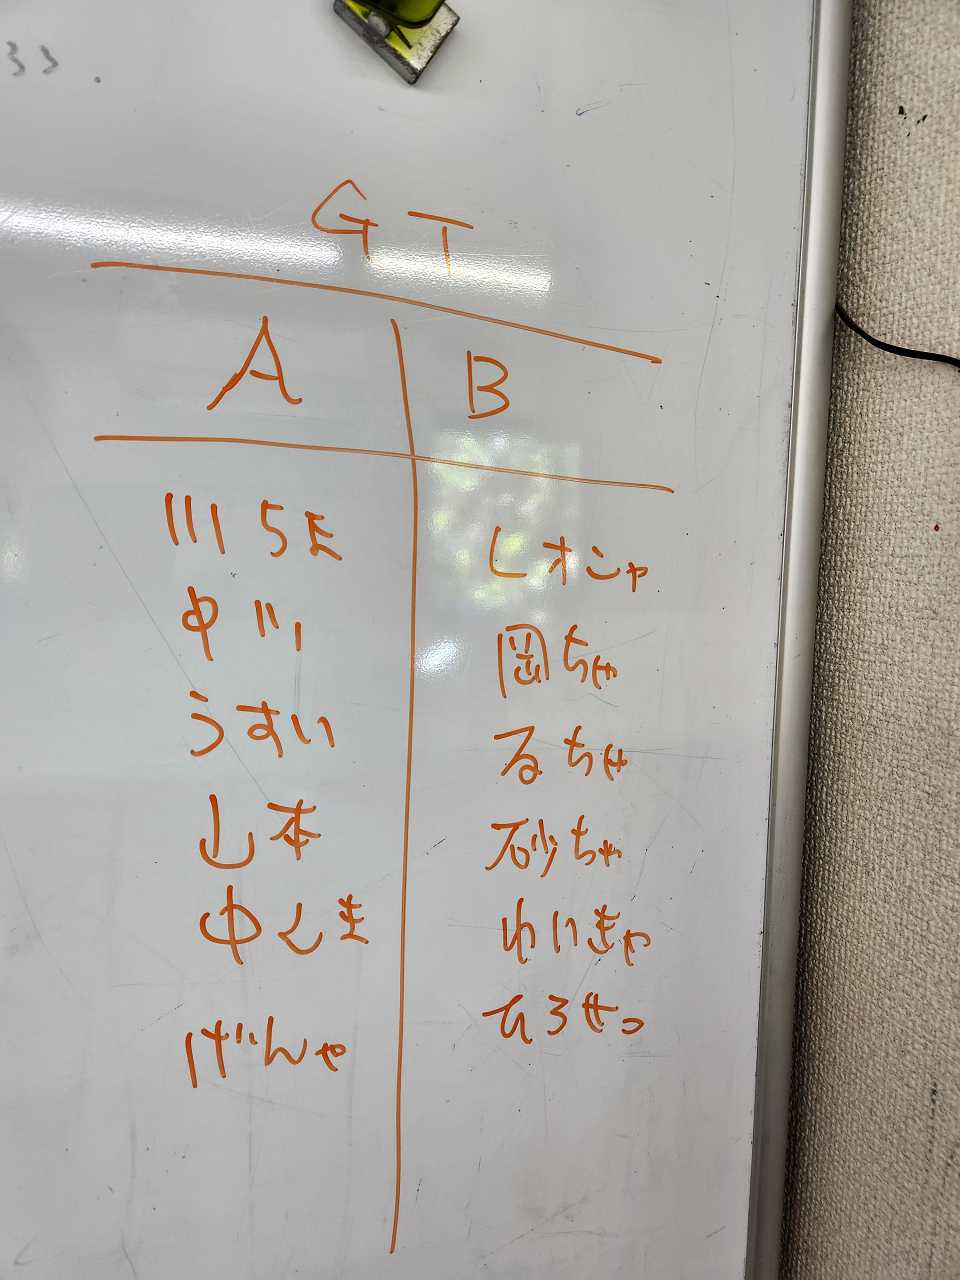 GT
A B
川らま
中川
うすい
山本
中くま
げんや
レオにゃ
岡ちゃ
るちゃ
砂ちゃ
ゆいきゃ
ひろせっ